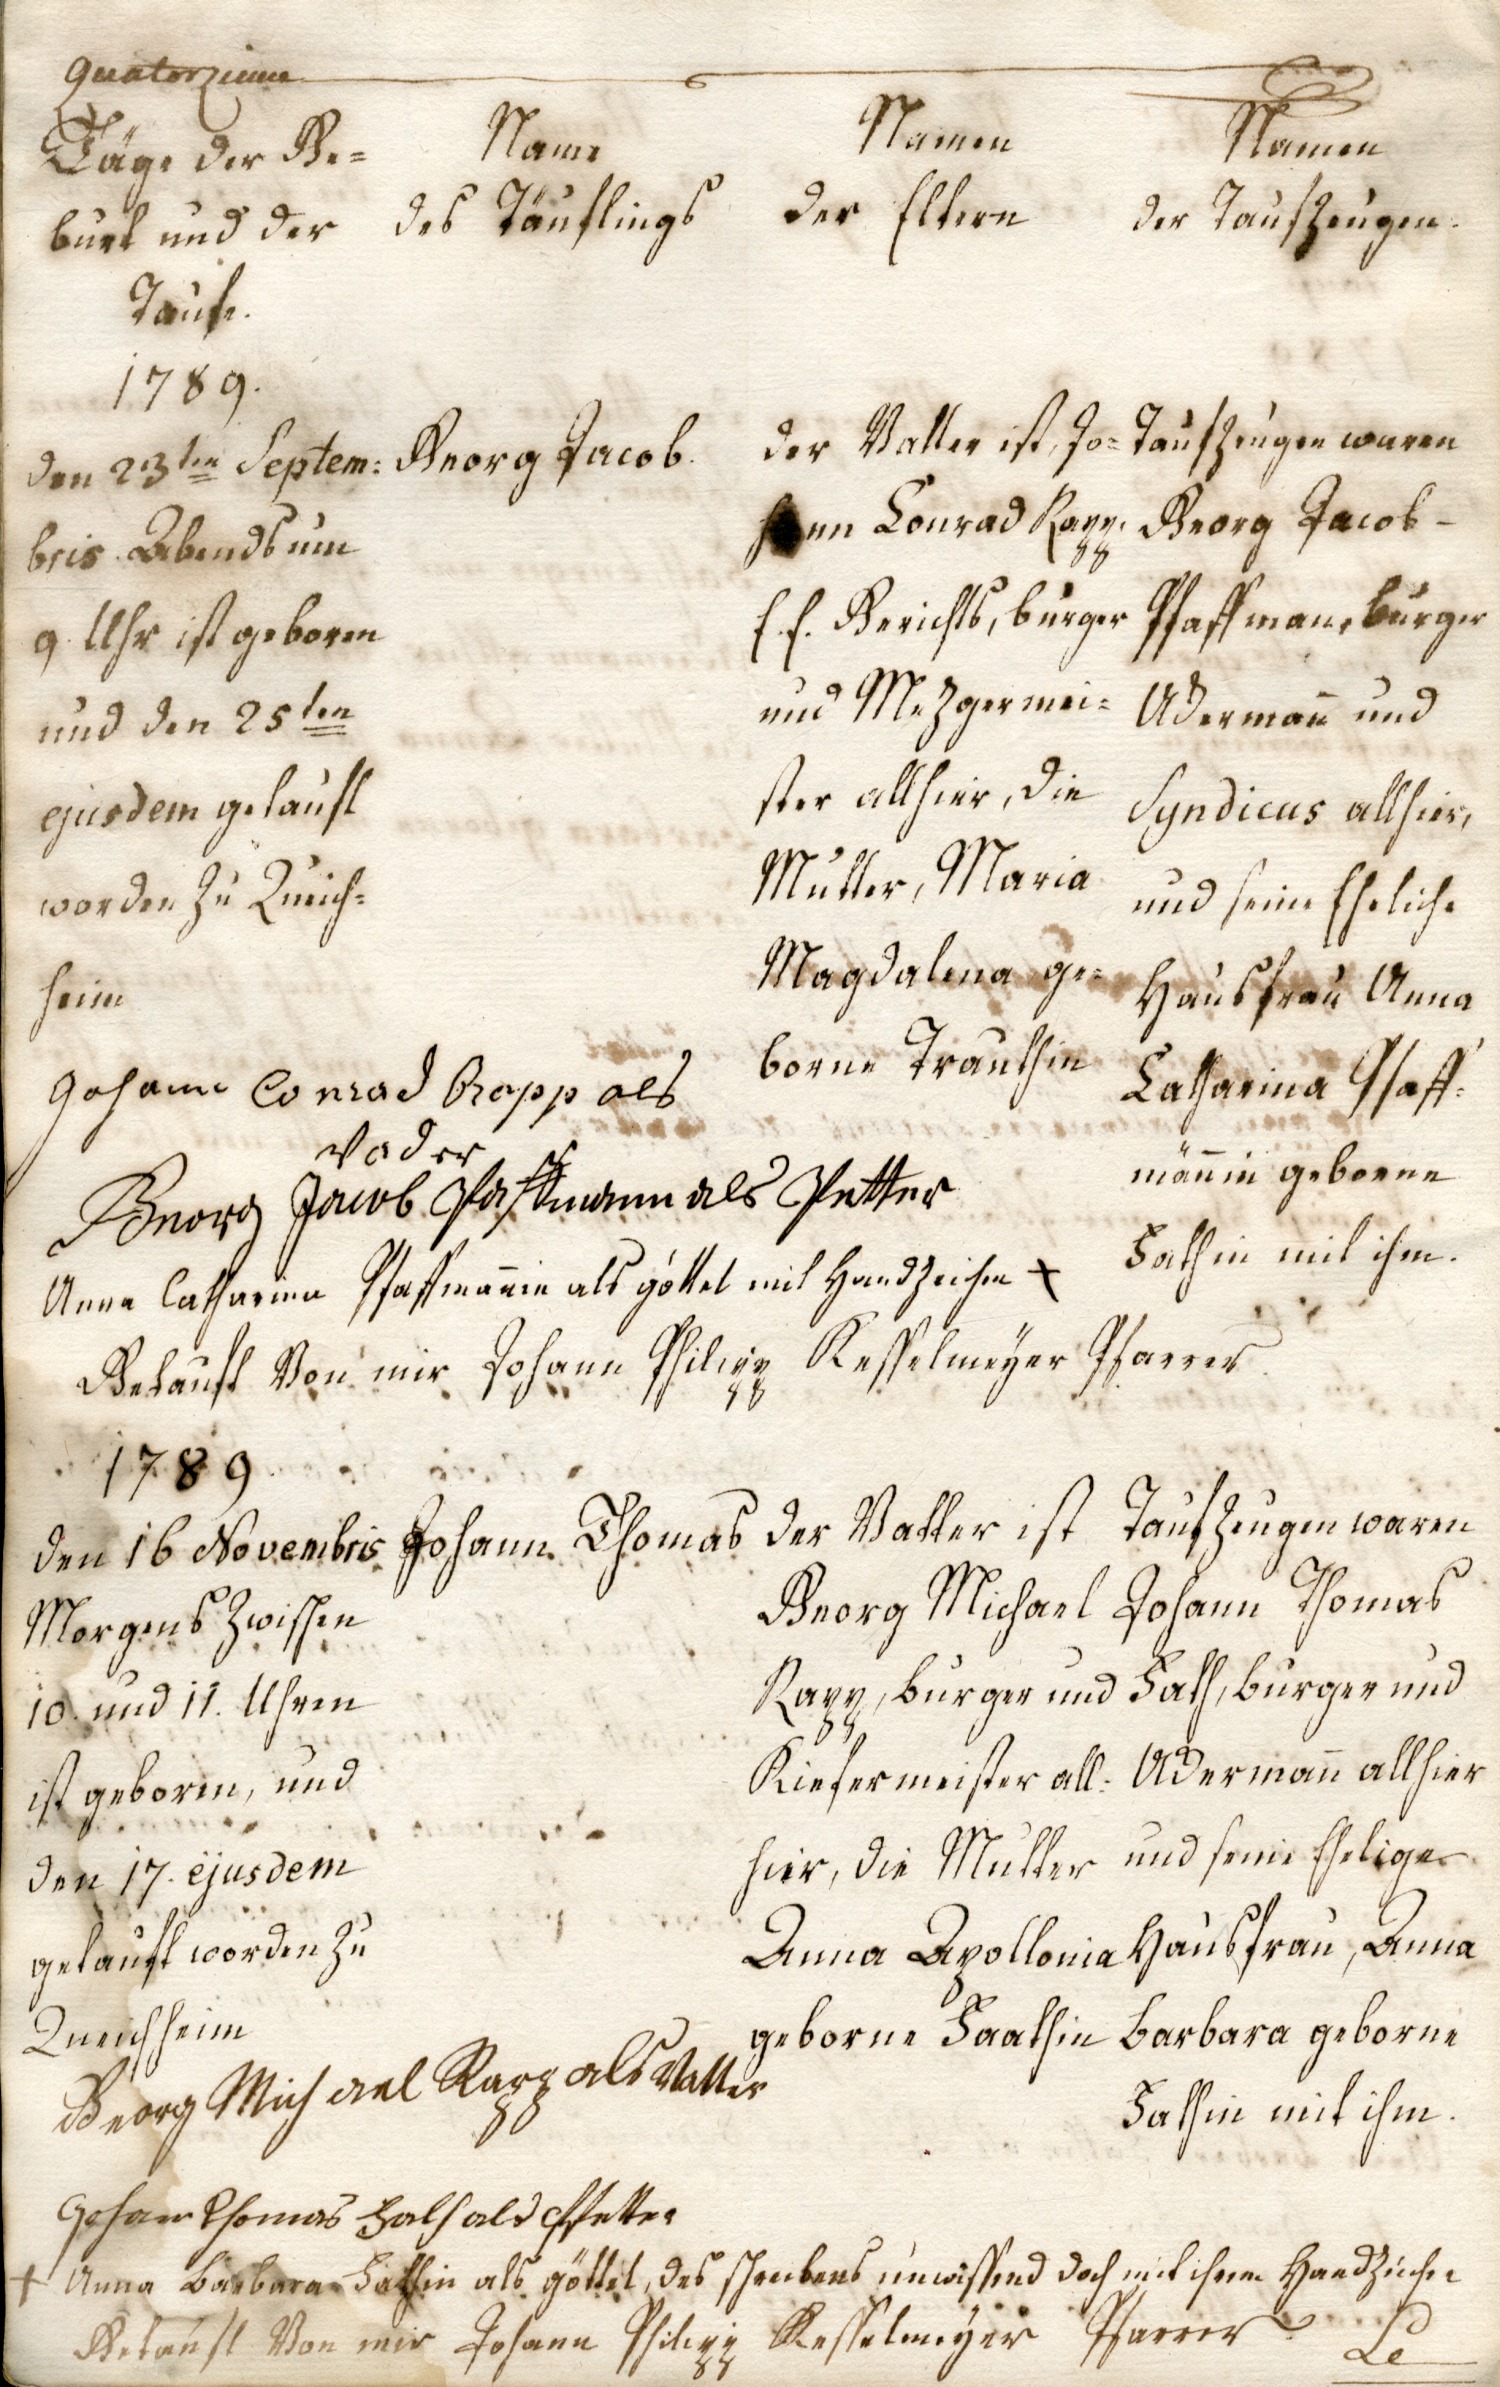 quatorzieme
Täge der Ge=
burt und der
Taufe.
Name
des Täuflings
Namen
der Eltern
Namen
der Taufzeugen.
1789.
den 23ten Septem:
bris Abends um
9 Uhr ist geboren
und den 25ten
ejusdem getauft
worden zu Queich=
heim
Georg Jacob.
der Vatter ist, Jo=
hann Conrad Rapp.
Gerichts, burger
und Mezgermei=
ster allhier, die
Mutter, Maria
Magdalena ge=
borne Trauthin
Taufzeugen waren
Georg Jacob
Pfaffman, burger
Akermañ und
Syndicus allhier,
und seine Eheliche
Hausfrau Anna
Catharina Pfaff=
mäñin geborne
Fathin mit ihm.
Johann Conrad Rapp als
Vader
Georg Jacob Pfaffmann als Petter
Anna Catharina Pfaffmäñin als göttel mit Handzeichen +
Getauft Von mir Johann Philipp Kesselmeÿer Pfarrer
1789
den 16 Novembris
Morgens zwischen
10. und 11. Uhren
ist geboren, und
den 17. ejusdem
getauft worden zu
Queichheim
Johann Thomas
der Vatter ist
Georg Michael
Rapp, burger und
Kiefermeister all=
hier, die Mutter
Anna Apollonia
geborne Faathin
Taufzeugen waren
Johann Thomas
Fath, burger und
Akermañ allhier
und seine Ehelige
Hausfrau, Anna
barbara geborne
Fathin mit ihm.
Georg Michael Rapp als Vatter
Johann Thomas Fath als Pfetter
+ Anna barbara Fathin als göttel, des schreibens unwissend doch mit ihrem Handzeichen
Getauft Von mir Johann Philipp Kesselmeÿer Pfarrer
Le